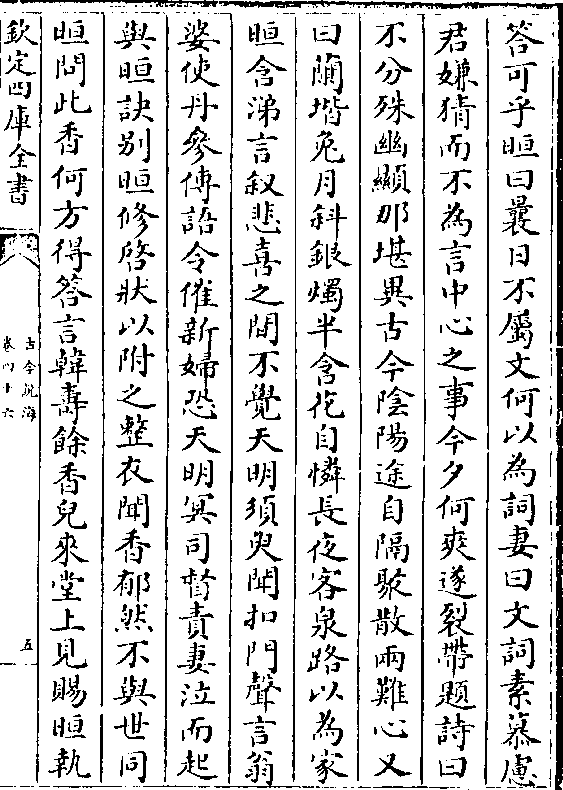 答可乎晅曰曩日不屬文何以為詞妻曰文詞素慕慮
君嫌猜而不為言中心之事今夕何爽遂裂帶題詩曰
不分殊幽顯那堪異古今陰陽途自隔聚散兩難心又
曰蘭堦兔月斜銀燭半含花自憐長夜客泉路以為家
晅含涕言叙悲喜之間不覺天明須臾聞扣門聲言翁
婆使丹參傳語令催新婦恐天明冥司督責妻泣而起
與晅訣别晅修啓狀以附之整衣聞香郁然不與世同
晅問此香何方得答言韓壽餘香兒來堂上見賜晅執
欽定四庫全書
古今說海
卷四十六
五